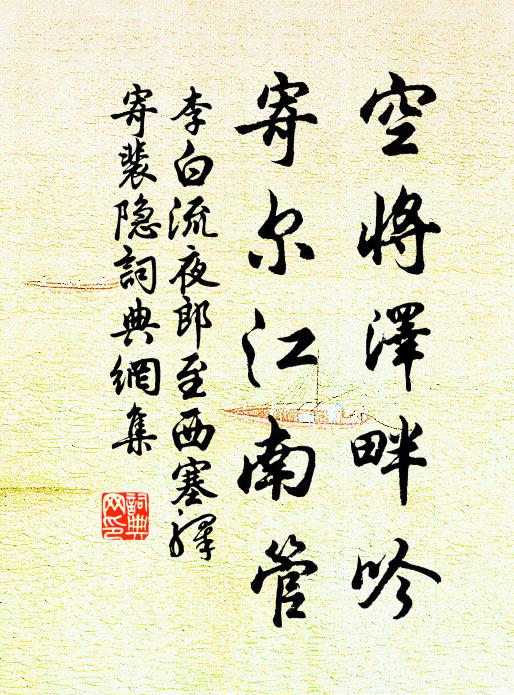 空將澤畔吟
寄尔江南管
李白流夜郎至西塞驛
寄裴隐詞典網集
詞典
网印